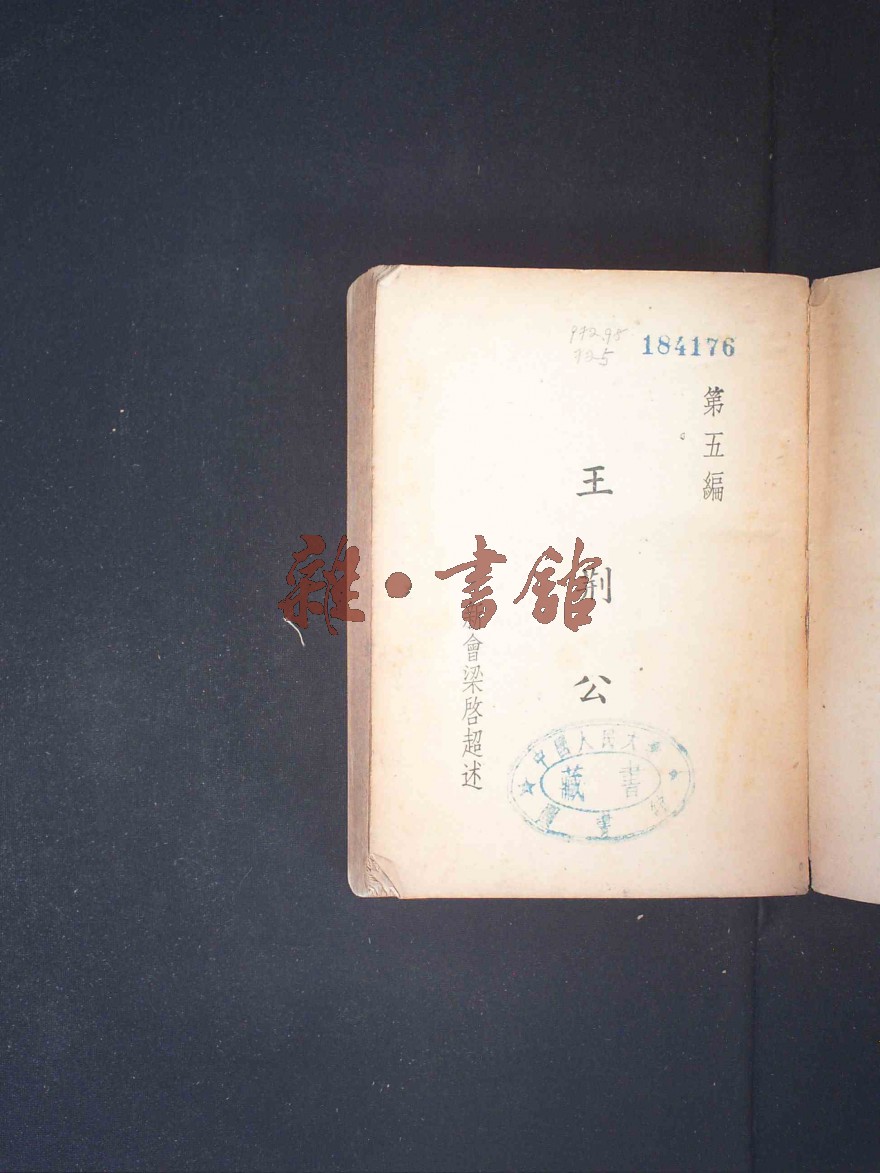 972.95
725
184176
第五編
王荆公
新會梁啓超述
雜·書館
中國人民大學
圖書館
藏書